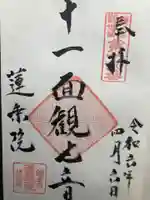 奉拝
令和六年
四月六日
十一面観世音
蓮乗院